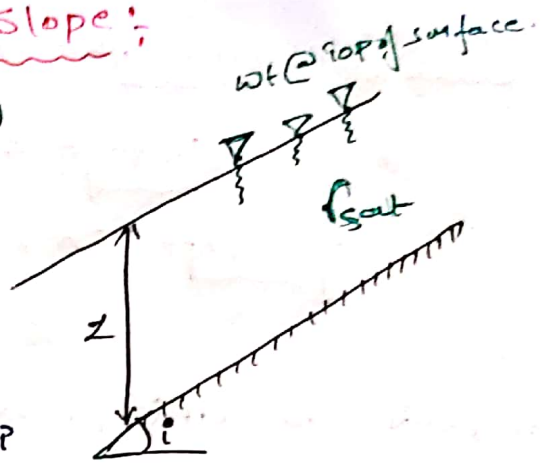 slope :
)
wt @ top of surface.
γsat
Z
i
P